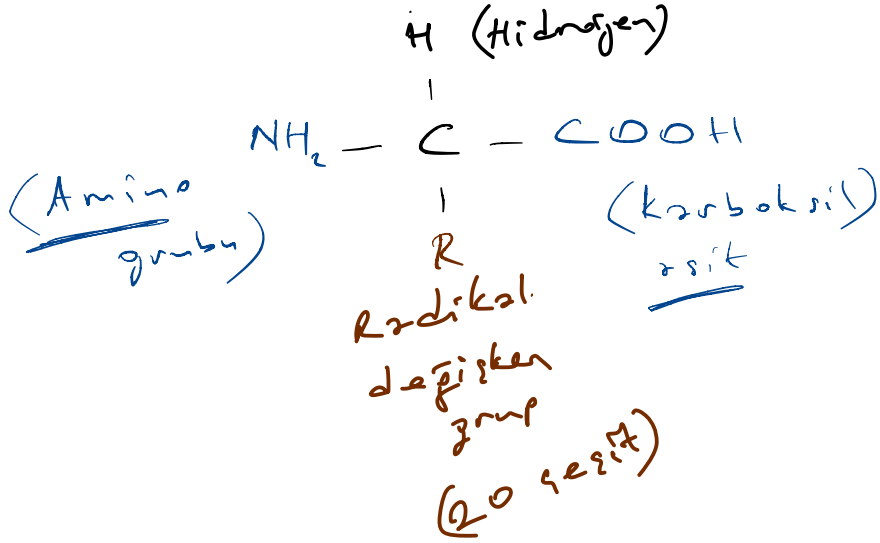 H (Hidrojen)
NH₂ — C — COOH
(Amino
grubu)
(karboksil)
asit
R
Radikal
değişken
grup
(20 çeşit)